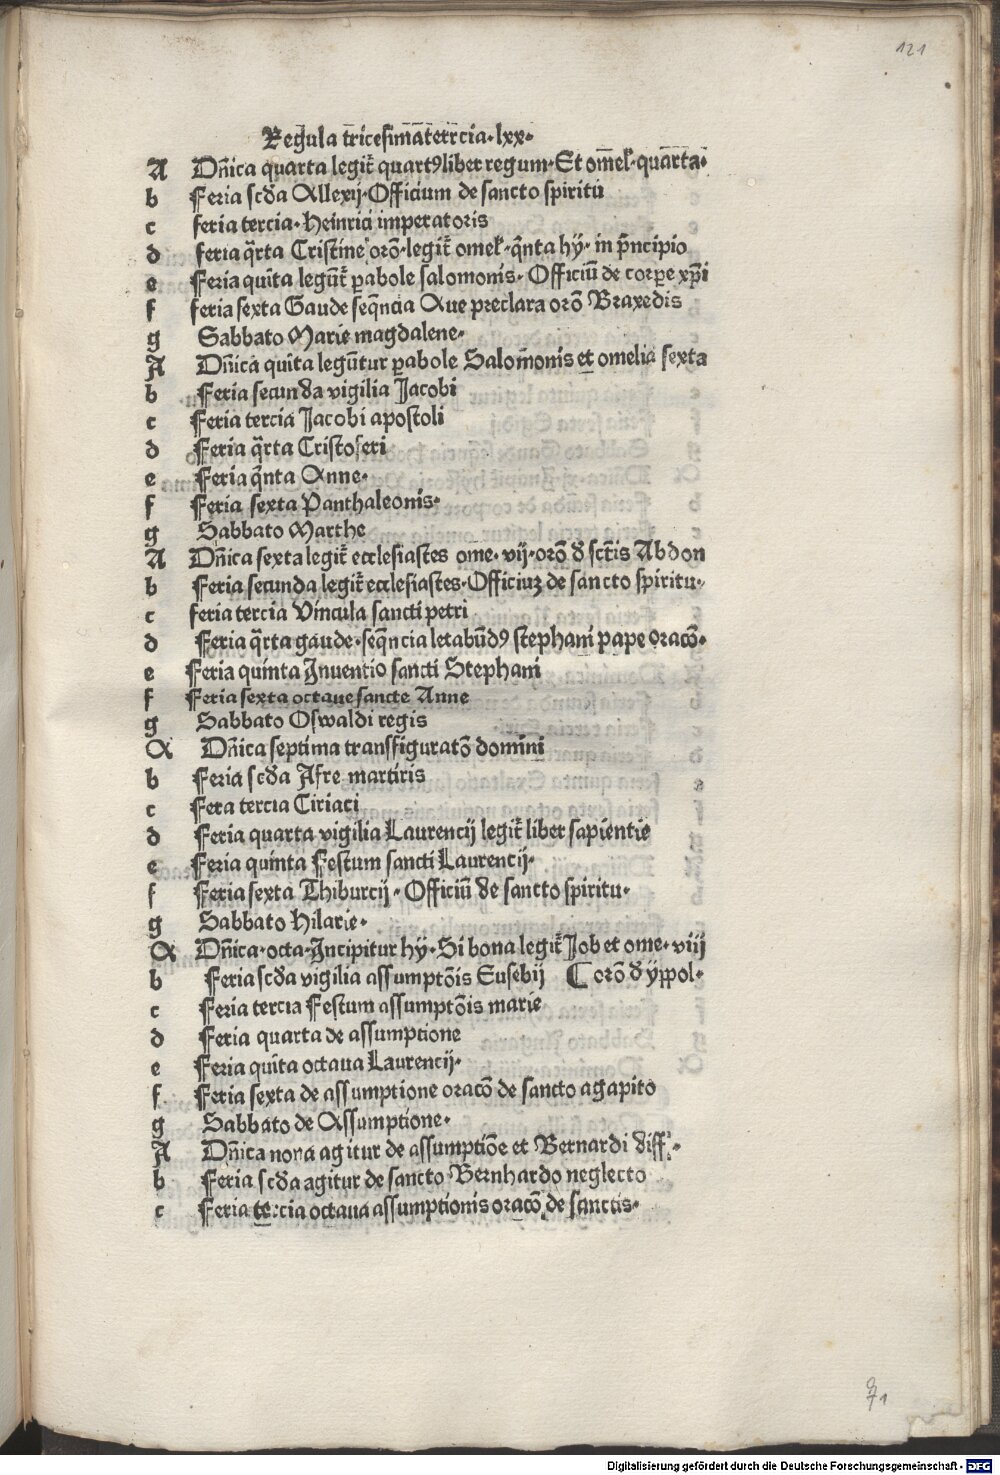 121
Regula tricesimatercia·lxx·
A Dn̄ica quarta legit᷑ quartꝰ liber regum·Et omel·quarta·
b Feria scd̄a Allexij·Officium de sancto spiritu
c feria tercia·Heinrici imperatoris
d feria q̄rta Cristine orō·legit᷑ omel·qn̄ta hy·in pn̄cipio
e Feria quīta legūt᷑ ꝑabole salomonis·Officiū de corꝑe xp̄i
f feria sexta Gaude seqn̄cia Aue preclara orō Braxedis
g Sabbato Marie magdalene·
A Dn̄ica quīta legūtur ꝑabole Salomonis et omelia sexta
b Feria secunda vigilia Jacobi
c Feria tercia Jacobi apostoli
d Feria q̄rta Cristoferi
e Feria qn̄ta Anne·
f Feria sexta Panthaleonis·
g Sabbato Marthe
A Dn̄ica sexta legit᷑ ecclesiastes ome·vij·orō d̄ sctīs Abdon
b Feria secunda legit᷑ ecclesiastes·Officiuꝫ de sancto spiritu·
c feria tercia Vincula sancti petri
d Feria q̄rta gaude·seqn̄cia letabūdꝰ stephani pape oracō·
e Feria quinta Inuentio sancti Stephani
f Feria sexta octaue sancte Anne
g Sabbato Oswaldi regis
A Dn̄ica septima transfiguratō domini
b Feria scd̄a Afre martiris
c Fera tercia Ciriaci
d Feria quarta vigilia Laurencij legit᷑ liber sapientie
e Feria quinta Festum sancti Laurencij·
f Feria sexta Thiburcij·Officiū de sancto spiritu·
g Sabbato Hilarie·
A Dn̄ica·octa·Incipitur hy·Si bona legit᷑ Job et ome·viij
b Feria scd̄a vigilia assumptōis Eusebij ⸿ orō d̄ yppol·
c Feria tercia Festum assumptōis marie
d Feria quarta de assumptione
e Feria quīta octaua Laurencij·
f. Feria sexta de assumptione oracō de sancto agapito
g Sabbato de Assumptione·
A Dn̄ica nona agitur de assumptiōe et Bernardi diff·
b Feria scd̄a agitur de sancto Bernhardo neglecto
c Feria tercia octaua assumptionis oracō de sanctis·
Digitalisierung gefördert durch die Deutsche Forschungsgemeinschaft - DFG